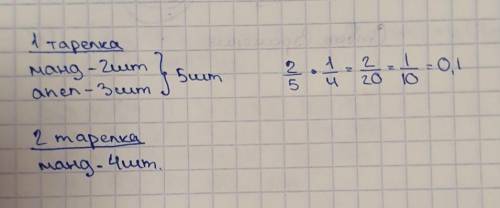 1 тарелка
манд - 2шт } 5шт
апел - 3шт
2/5 · 1/4 = 2/20 = 1/10 = 0,1
2 тарелка
манд - 4шт.